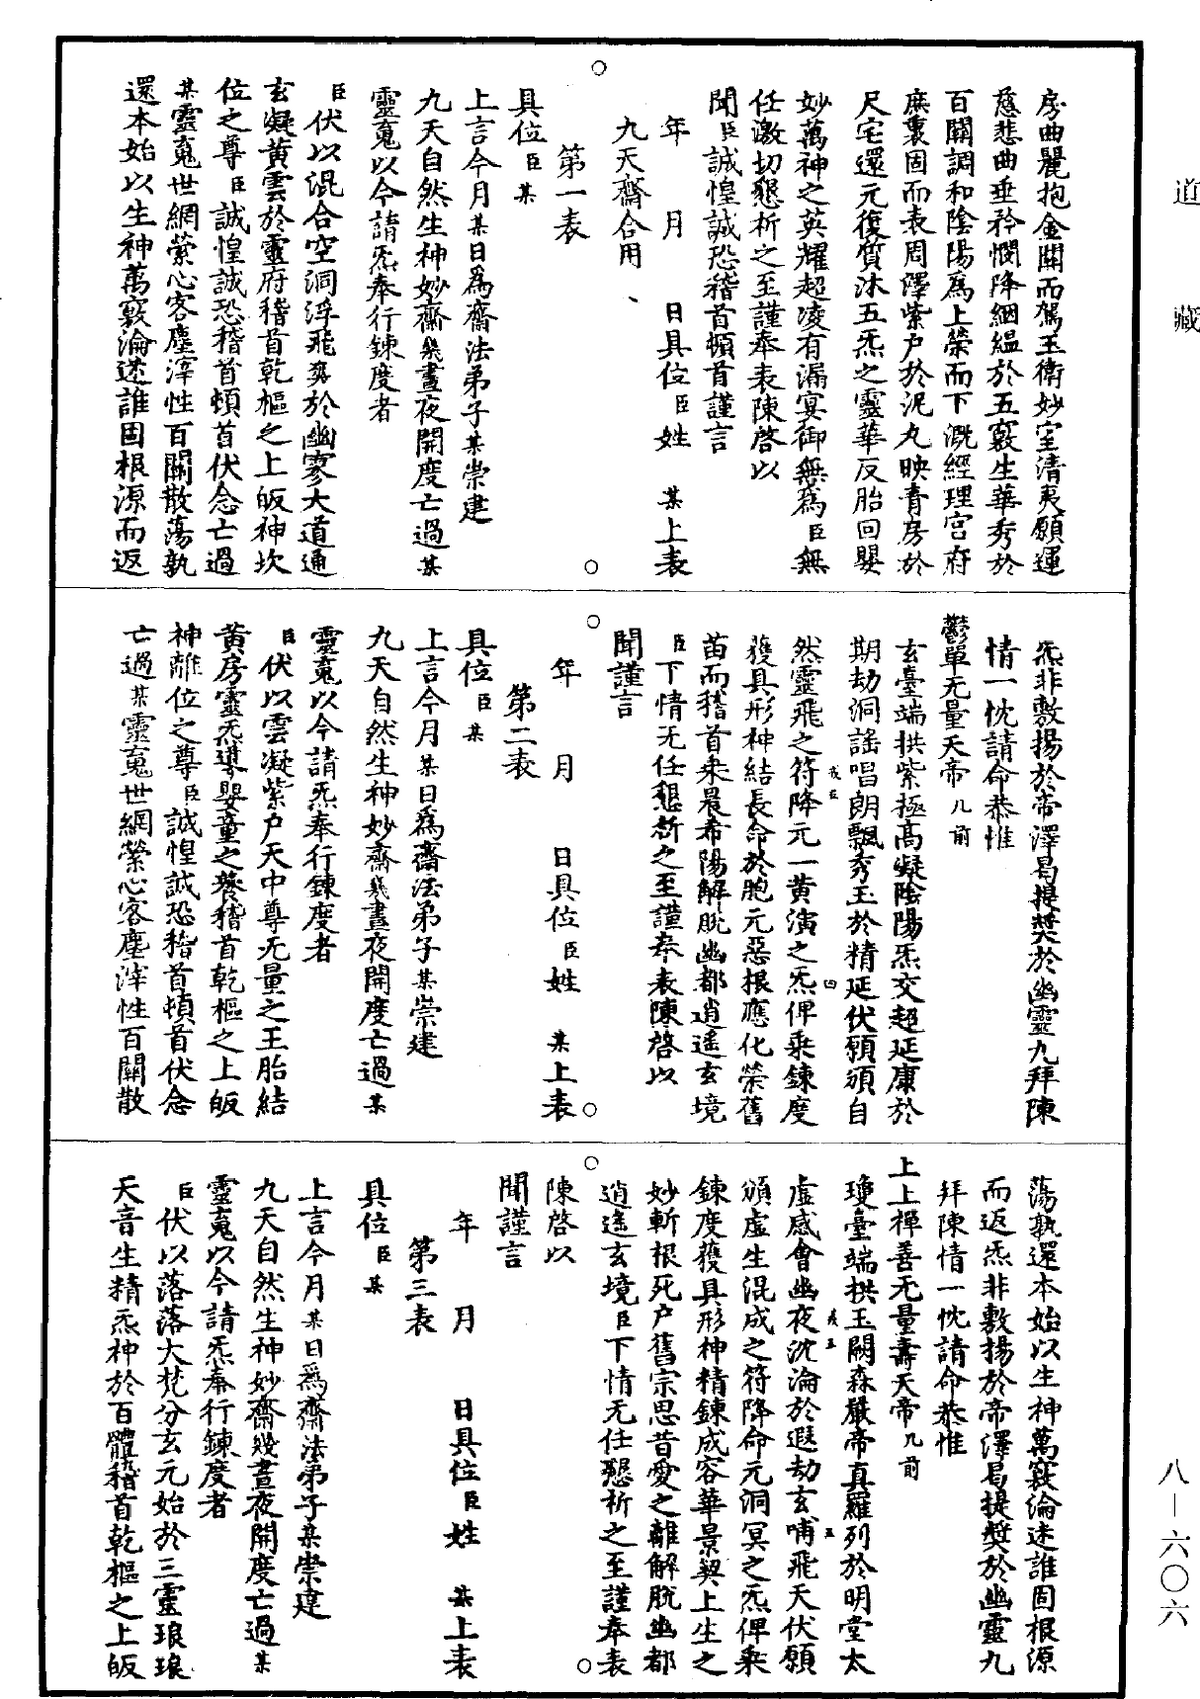 房曲麗抱金關而駕玉衛妙室清夷願運
慈悲曲垂矜憫降絪緼於五竅生華秀於
百關調和陰陽爲上榮而下溉經理宮府
庶裏固而表周澤紫户於泥丸映青房於
尺宅還元復質沐五炁之靈華反胎回嬰
妙萬神之英耀超凌有漏宴御無爲臣無
任激切懇祈之至謹奉表陳啓以
聞臣誠惶誠恐稽首頓首謹言
年　月　日具位臣姓　某上表
九天齋合用
第一表
具位臣某
上言今月某日爲齋法弟子某崇建
九天自然生神妙齋幾晝夜開度亡過某
靈䰟以今請炁奉行鍊度者
臣伏以混合空洞浮飛爽於幽寥大道通
玄凝黄雲於靈府稽首乾樞之上皈神坎
位之尊臣誠惶誠恐稽首頓首伏念亡過
某靈䰟世網縈心客塵滓性百關散蕩孰
還本始以生神萬竅淪迷誰固根源而返
炁非敷揚於帝澤曷提奬於幽靈九拜陳
情一忱請命恭惟
鬱單无量天帝几前
玄臺端拱紫極高凝陰陽炁交超延康於
期劫洞謠唱朗飄秀玉於精延伏願頒自
然靈飛之符降元一黄演之炁俾乘鍊度
獲具形神結長命於胞元惡根應化榮舊
苗而稽首来晨希陽解脱幽都逍遥玄境
臣下情无任懇祈之至謹奉表陳啓以
聞謹言
年　月　日具位臣姓　某上表
第二表
具位臣某
上言今月某日爲齋法弟子某崇建
九天自然生神妙齋幾晝夜開度亡過某
靈䰟以今請炁奉行鍊度者
臣伏以雲凝紫户天中尊无量之王胎結
黄房靈炁導嬰童之養稽首乾樞之上皈
神離位之尊臣誠惶誠恐稽首頓首伏念
亡過某靈䰟世網縈心客塵滓性百關散
蕩孰還本始以生神萬竅淪迷誰固根源
而返炁非敷揚於帝澤曷提奬於幽靈九
拜陳情一忱請命恭惟
上上禪善无量壽天帝几前
瓊臺端拱玉闕森嚴帝真羅列於明堂太
虚感會幽夜沈淪於遐劫玄哺飛天伏願
頒虚生混成之符降命元洞冥之炁俾乘
鍊度獲具形神精鍊成容華景契上生之
妙斬根死户舊宗思昔愛之離解脱幽都
逍遥玄境臣下情无任懇祈之至謹奉表
陳啓以
聞謹言
年　月　日具位臣姓　某上表
第三表
具位臣某
上言今月某日爲齋法弟子某崇建
九天自然生神妙齋幾晝夜開度亡過某
靈䰟以今請炁奉行鍊度者
臣伏以落落大梵分玄元始於三靈琅琅
天音生精炁神於百體稽首乾樞之上皈
道藏
八—六〇六